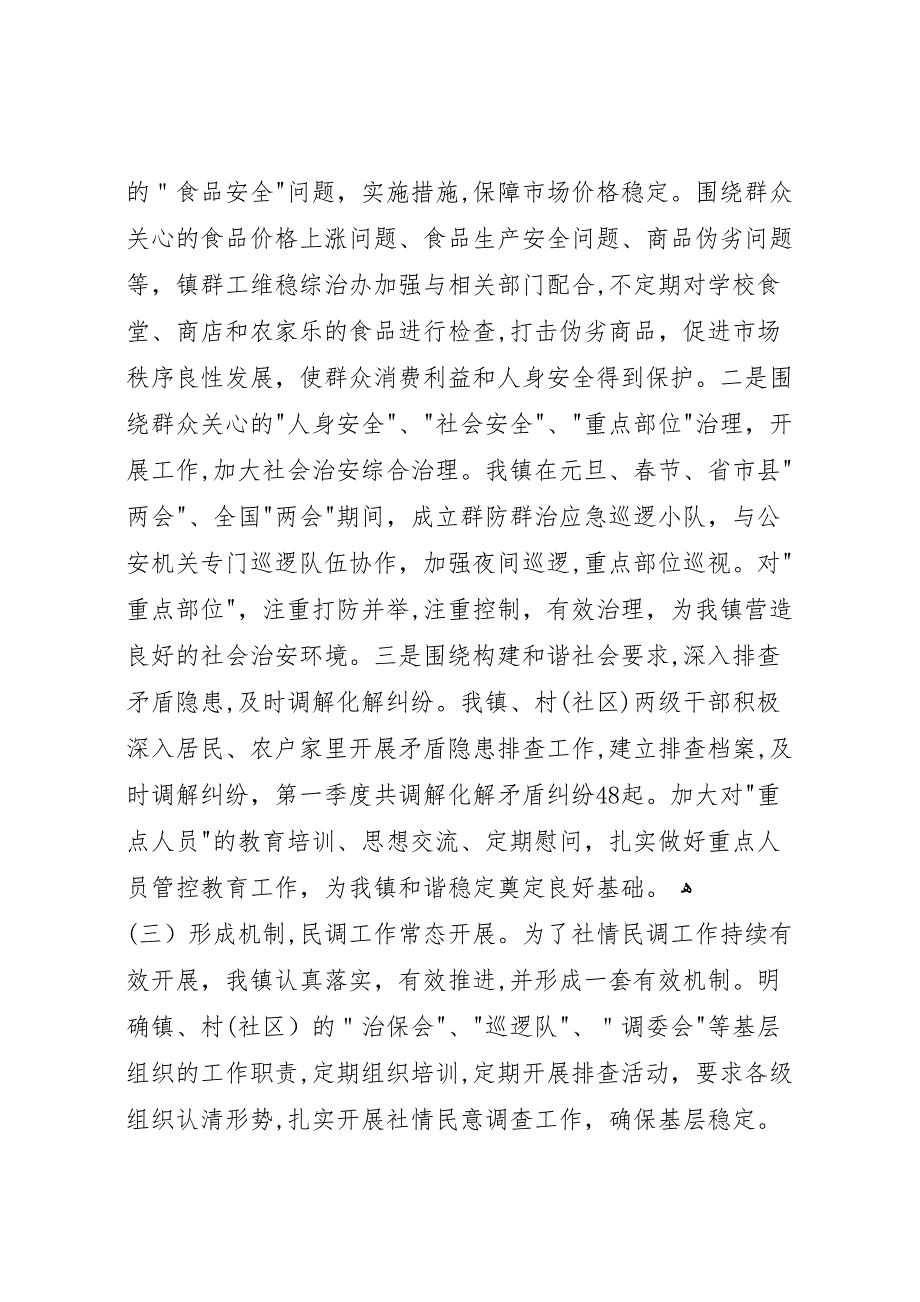 的＂食品安全"问题，实施措施,保障市场价格稳定。围绕群众
关心的食品价格上涨问题、食品生产安全问题、商品伪劣问题
等，镇群工维稳综治办加强与相关部门配合,不定期对学校食
堂、商店和农家乐的食品进行检查,打击伪劣商品，促进市场
秩序良性发展，使群众消费利益和人身安全得到保护。二是围
绕群众关心的"人身安全"、"社会安全"、"重点部位"治理，开
展工作,加大社会治安综合治理。我镇在元旦、春节、省市县"
两会"、全国"两会"期间，成立群防群治应急巡逻小队，与公
安机关专门巡逻队伍协作，加强夜间巡逻,重点部位巡视。对"
重点部位"，注重打防并举,注重控制，有效治理，为我镇营造
良好的社会治安环境。三是围绕构建和谐社会要求,深入排查
矛盾隐患,及时调解化解纠纷。我镇、村(社区)两级干部积极
深入居民、农户家里开展矛盾隐患排查工作,建立排查档案,及
时调解纠纷，第一季度共调解化解矛盾纠纷48起。加大对"重
点人员"的教育培训、思想交流、定期慰问，扎实做好重点人
员管控教育工作，为我镇和谐稳定奠定良好基础。 ﻫ
(三）形成机制,民调工作常态开展。为了社情民调工作持续有
效开展，我镇认真落实，有效推进,并形成一套有效机制。明
确镇、村(社区）的＂治保会"、"巡逻队"、＂调委会"等基层
组织的工作职责,定期组织培训,定期开展排查活动，要求各级
组织认清形势,扎实开展社情民意调查工作，确保基层稳定。